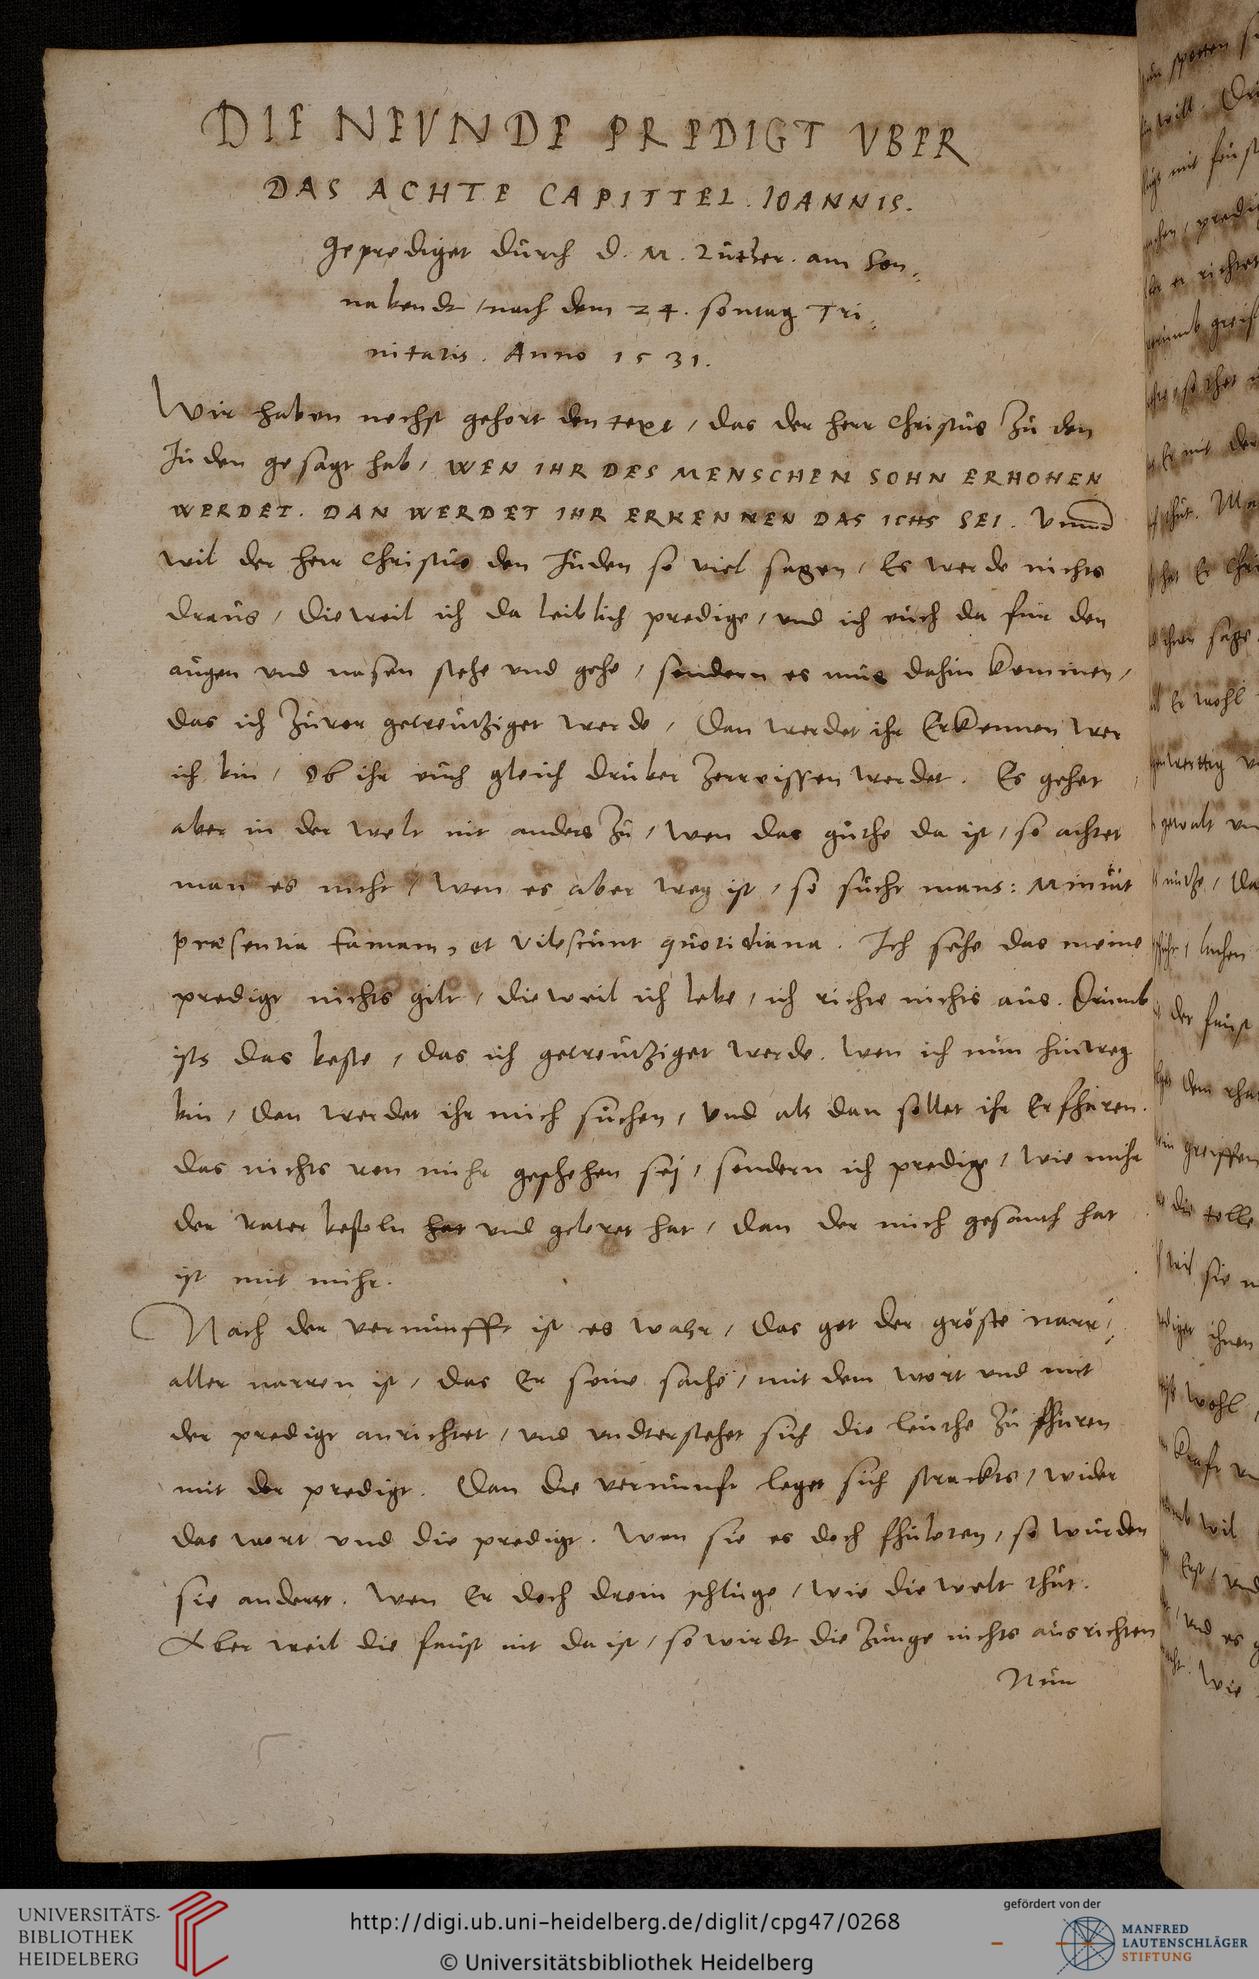 DIE NEVNDE PREDIGT VBER
DAS ACHTE CAPITTEL. IOANNIS.
geprediget durch D. M. Luther. am Son:
nabendt / nach dem 24. sontag Tri:
nitatis. Anno 1531.
Wir haben nechst gehort den text / das der herr Christus Zu den
Juden gesagt hab / WEN IHR DES MENSCHEN SOHN ERHOHEN
WERDET. DAN WERDET IHR ERKENNEN DAS ICHS SEI. Vnnd
wil der herr Christus den Juden so viel sagen / Es werde nichts
draus / dieweil ich da leiblich predige / vnd ich euch da fur den
augen vnd nasen stehe vnd gehe / sondern es mus dahin kommen /
das ich Zuvor gecreutziget werde / Dan werdet ihr Erkennen wer
ich bin / Ob ihr euch gleich druber Zerreissen werdet. Es gehet
aber in der welt nit anders Zu / wen das guthe da ist / so achtet
man es nicht / wen es aber weg ist / so sucht mans: Minuit
præsentia famam, et vilescunt quotidiana. Ich sehe das meine
predigt nichts gilt / dieweil ich lebe / ich richte nichts aus. Drumb
ists das beste / das ich gecreutziget werde. Wen ich nun hinweg
bin / Dan werdet ihr mich suchen / Vnd als dan sollet ihr Erfharen.
das nichts von mihr geschehen sej / sondern ich predige / wie mihr
der Vater befoln hat vnd geleret hat / Dan der mich gesandt hat
ist mit mihr.
Nach der vernunfft ist es wahr / das got der gröste narr /
aller narren ist / das Er seine sache / mit dem wort vnd mit
der predigt anrichtet / vnd vndterstehet sich die leuthe Zu fhuren
mit der predigt. Dan die vernunft leget sich stracks / wider
das wort vnd die predigt. Wen sie es doch fhuleten / so wurden
sie anders. Wen Er doch drein schluge / wie die welt thut.
Aber weil die faust nit da ist / so wirdt die Zunge nichts ausrichten
Nun
UNIVERSITÄTS-
BIBLIOTHEK
HEIDELBERG
http://digi.ub.uni-heidelberg.de/diglit/cpg47/0268
© Universitätsbibliothek Heidelberg
gefördert von der
MANFRED
LAUTENSCHLÄGER
STIFTUNG